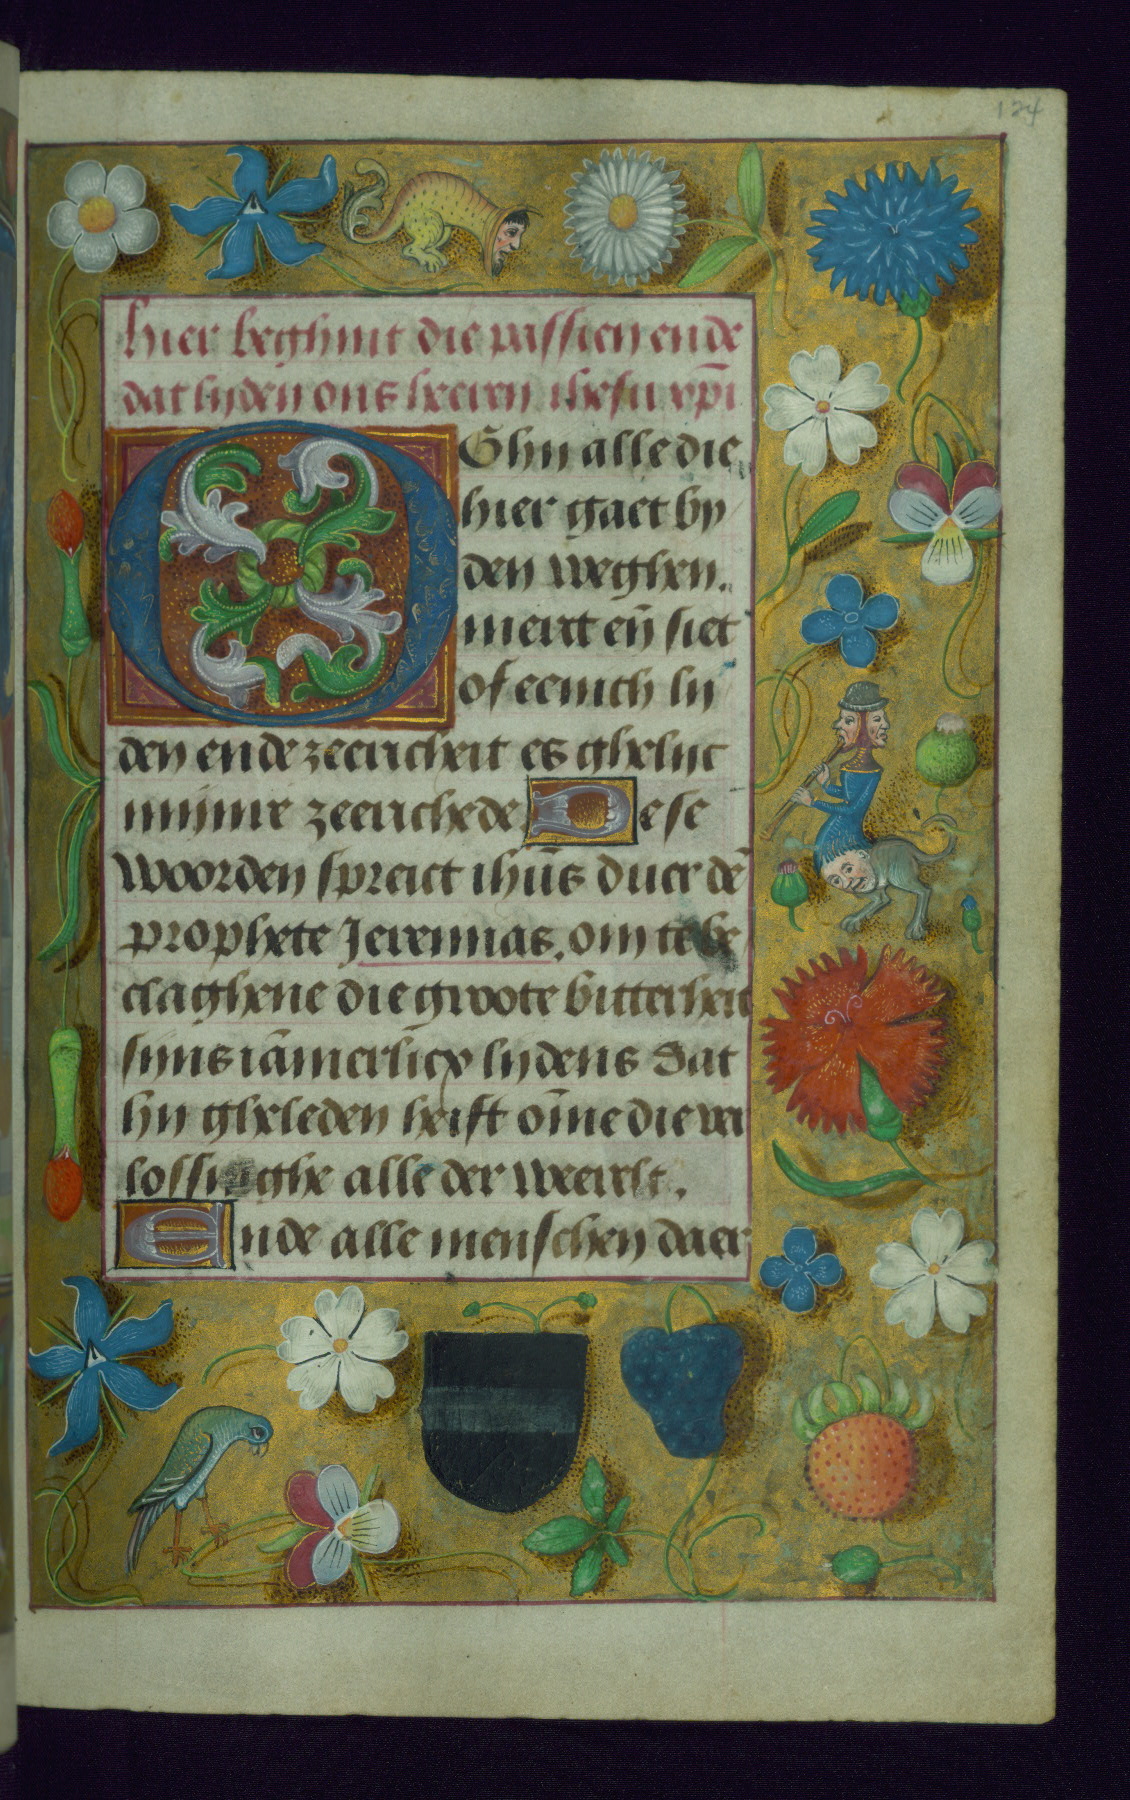 124
hier beghint die passien ende
dat lyden ons heeren ihesu xp̄i
O Ghy alle die
hier gaet by
den weghen.
merct eñ siet
of eenich ly
den ende zeericheit es ghelyc
mijnre zeerichede Dese
woorden spreict ihūs duer dē
prophete Jeremias, om te be
claghene die groote bitterheit
syns iāmerlicx lydens dat
hy gheleden heift om̄e die ver
lossinghe alle der weerelt.
Ende alle menschen daer